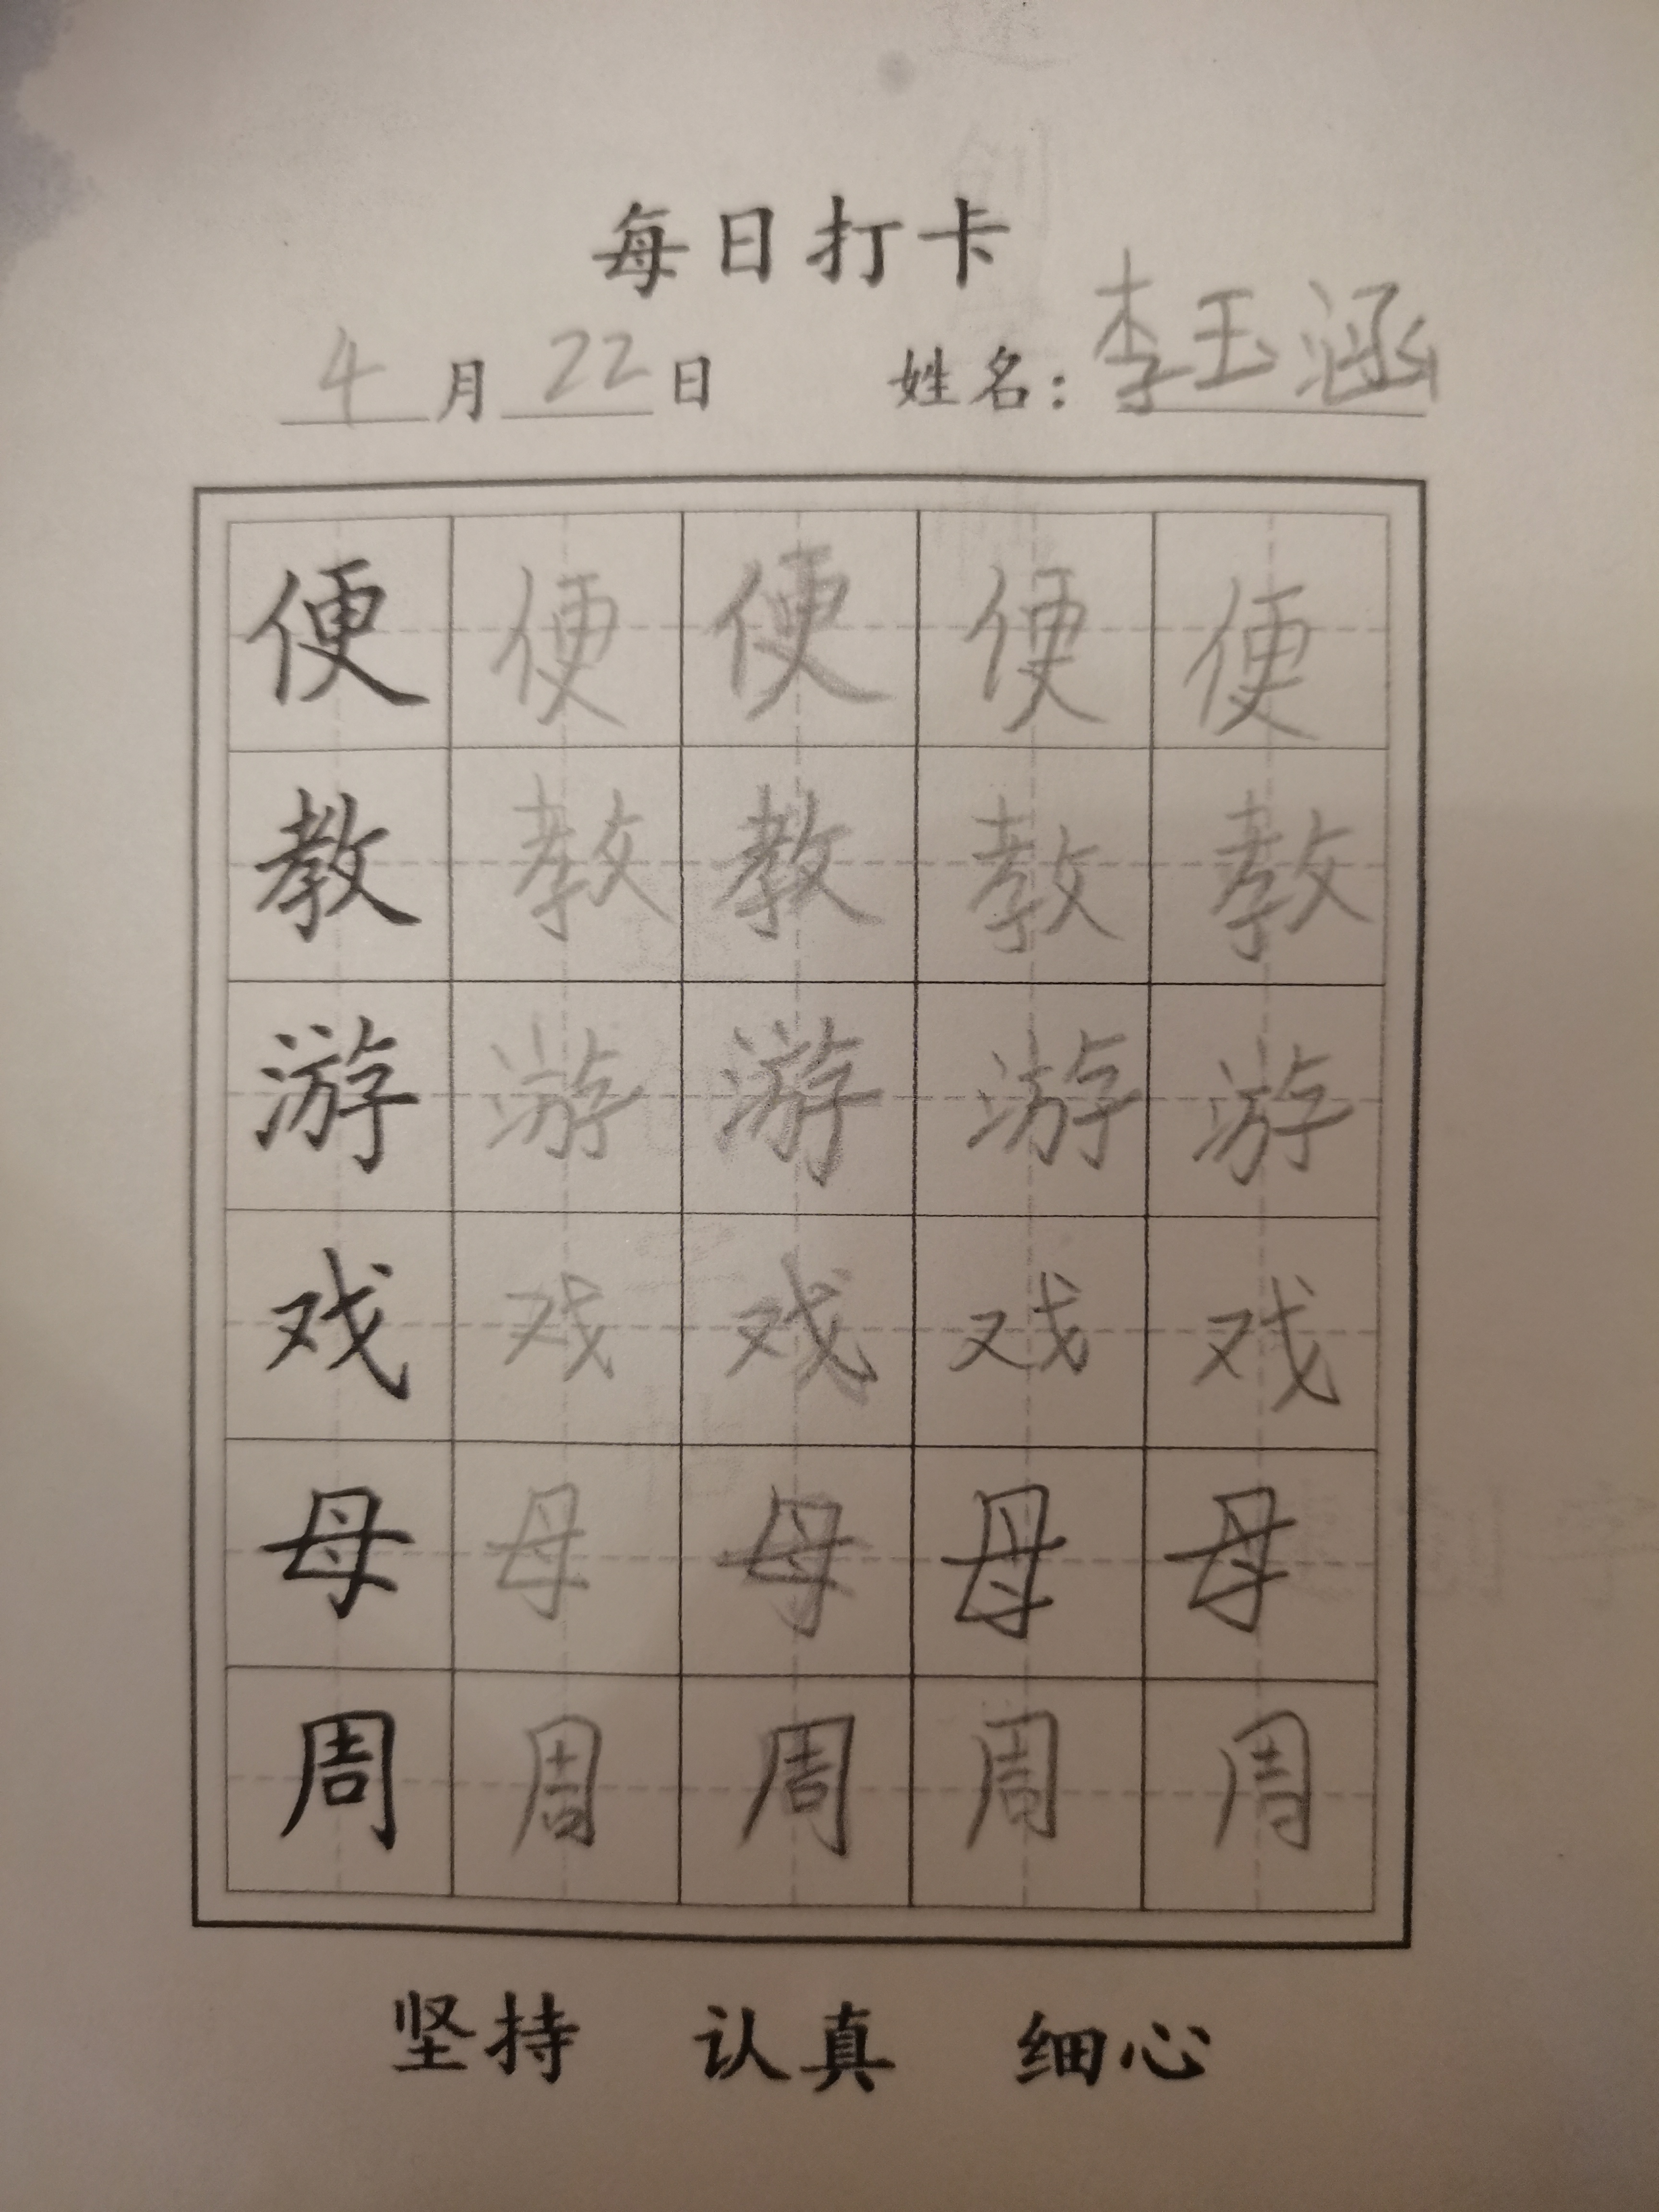 每日打卡
4月22日 姓名：李玉涵
便 便 便 便 便
教 教 教 教 教
游 游 游 游 游
戏 戏 戏 戏 戏
母 母 母 母 母
周 周 周 周 周
坚持 认真 细心